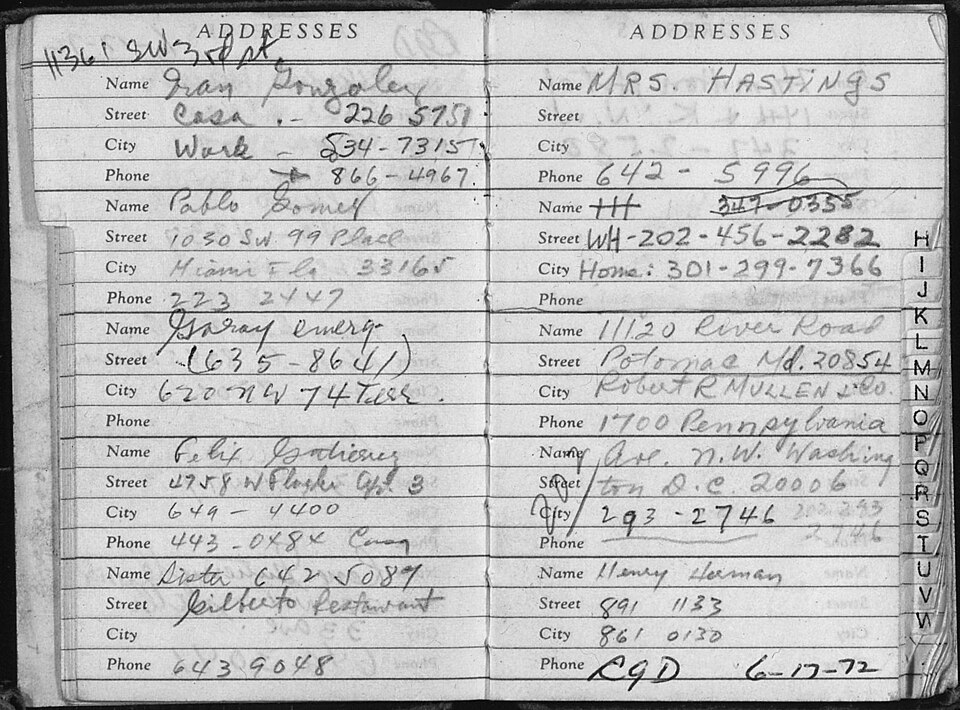 ADDRESSES
11361 SW 3rd st.
Name Ivan Gonzalez
Street Casa .- 226 5751
City Work - 534-7315
Phone 866-4967
Name Pablo Gomez
Street 1030 SW 99 Place
City Miami Fla 33165
Phone 223 2447
Name Garay emerg.
Street (635-8641)
City 620 NW 74 Terr.
Phone
Name Felix Gutierrez
Street 4758 W Flagler Apt. 3
City 649-4400
Phone 443-0484 Casa
Name Sister 642 5089
Street Gilberto Restaurant
City
Phone 643 9048
ADDRESSES
Name MRS. HASTINGS
Street
City
Phone 642-5996
Name HH 347-0355
Street WH-202-456-2282
City Home: 301-299-7366
Phone
Name 11120 River Road
Street Potomac Md. 20854
City Robert R MULLEN & Co.
Phone 1700 Pennsylvania
Name Ave. N.W. Washing
Street ton D.C. 20006
City 293-2746 202 293
Phone 2746
Name Henry
Street 891 1133
City 861 0130
Phone 6-17-72
H
I
J
K
L
M
N
O
P
Q
R
S
T
U
V
W